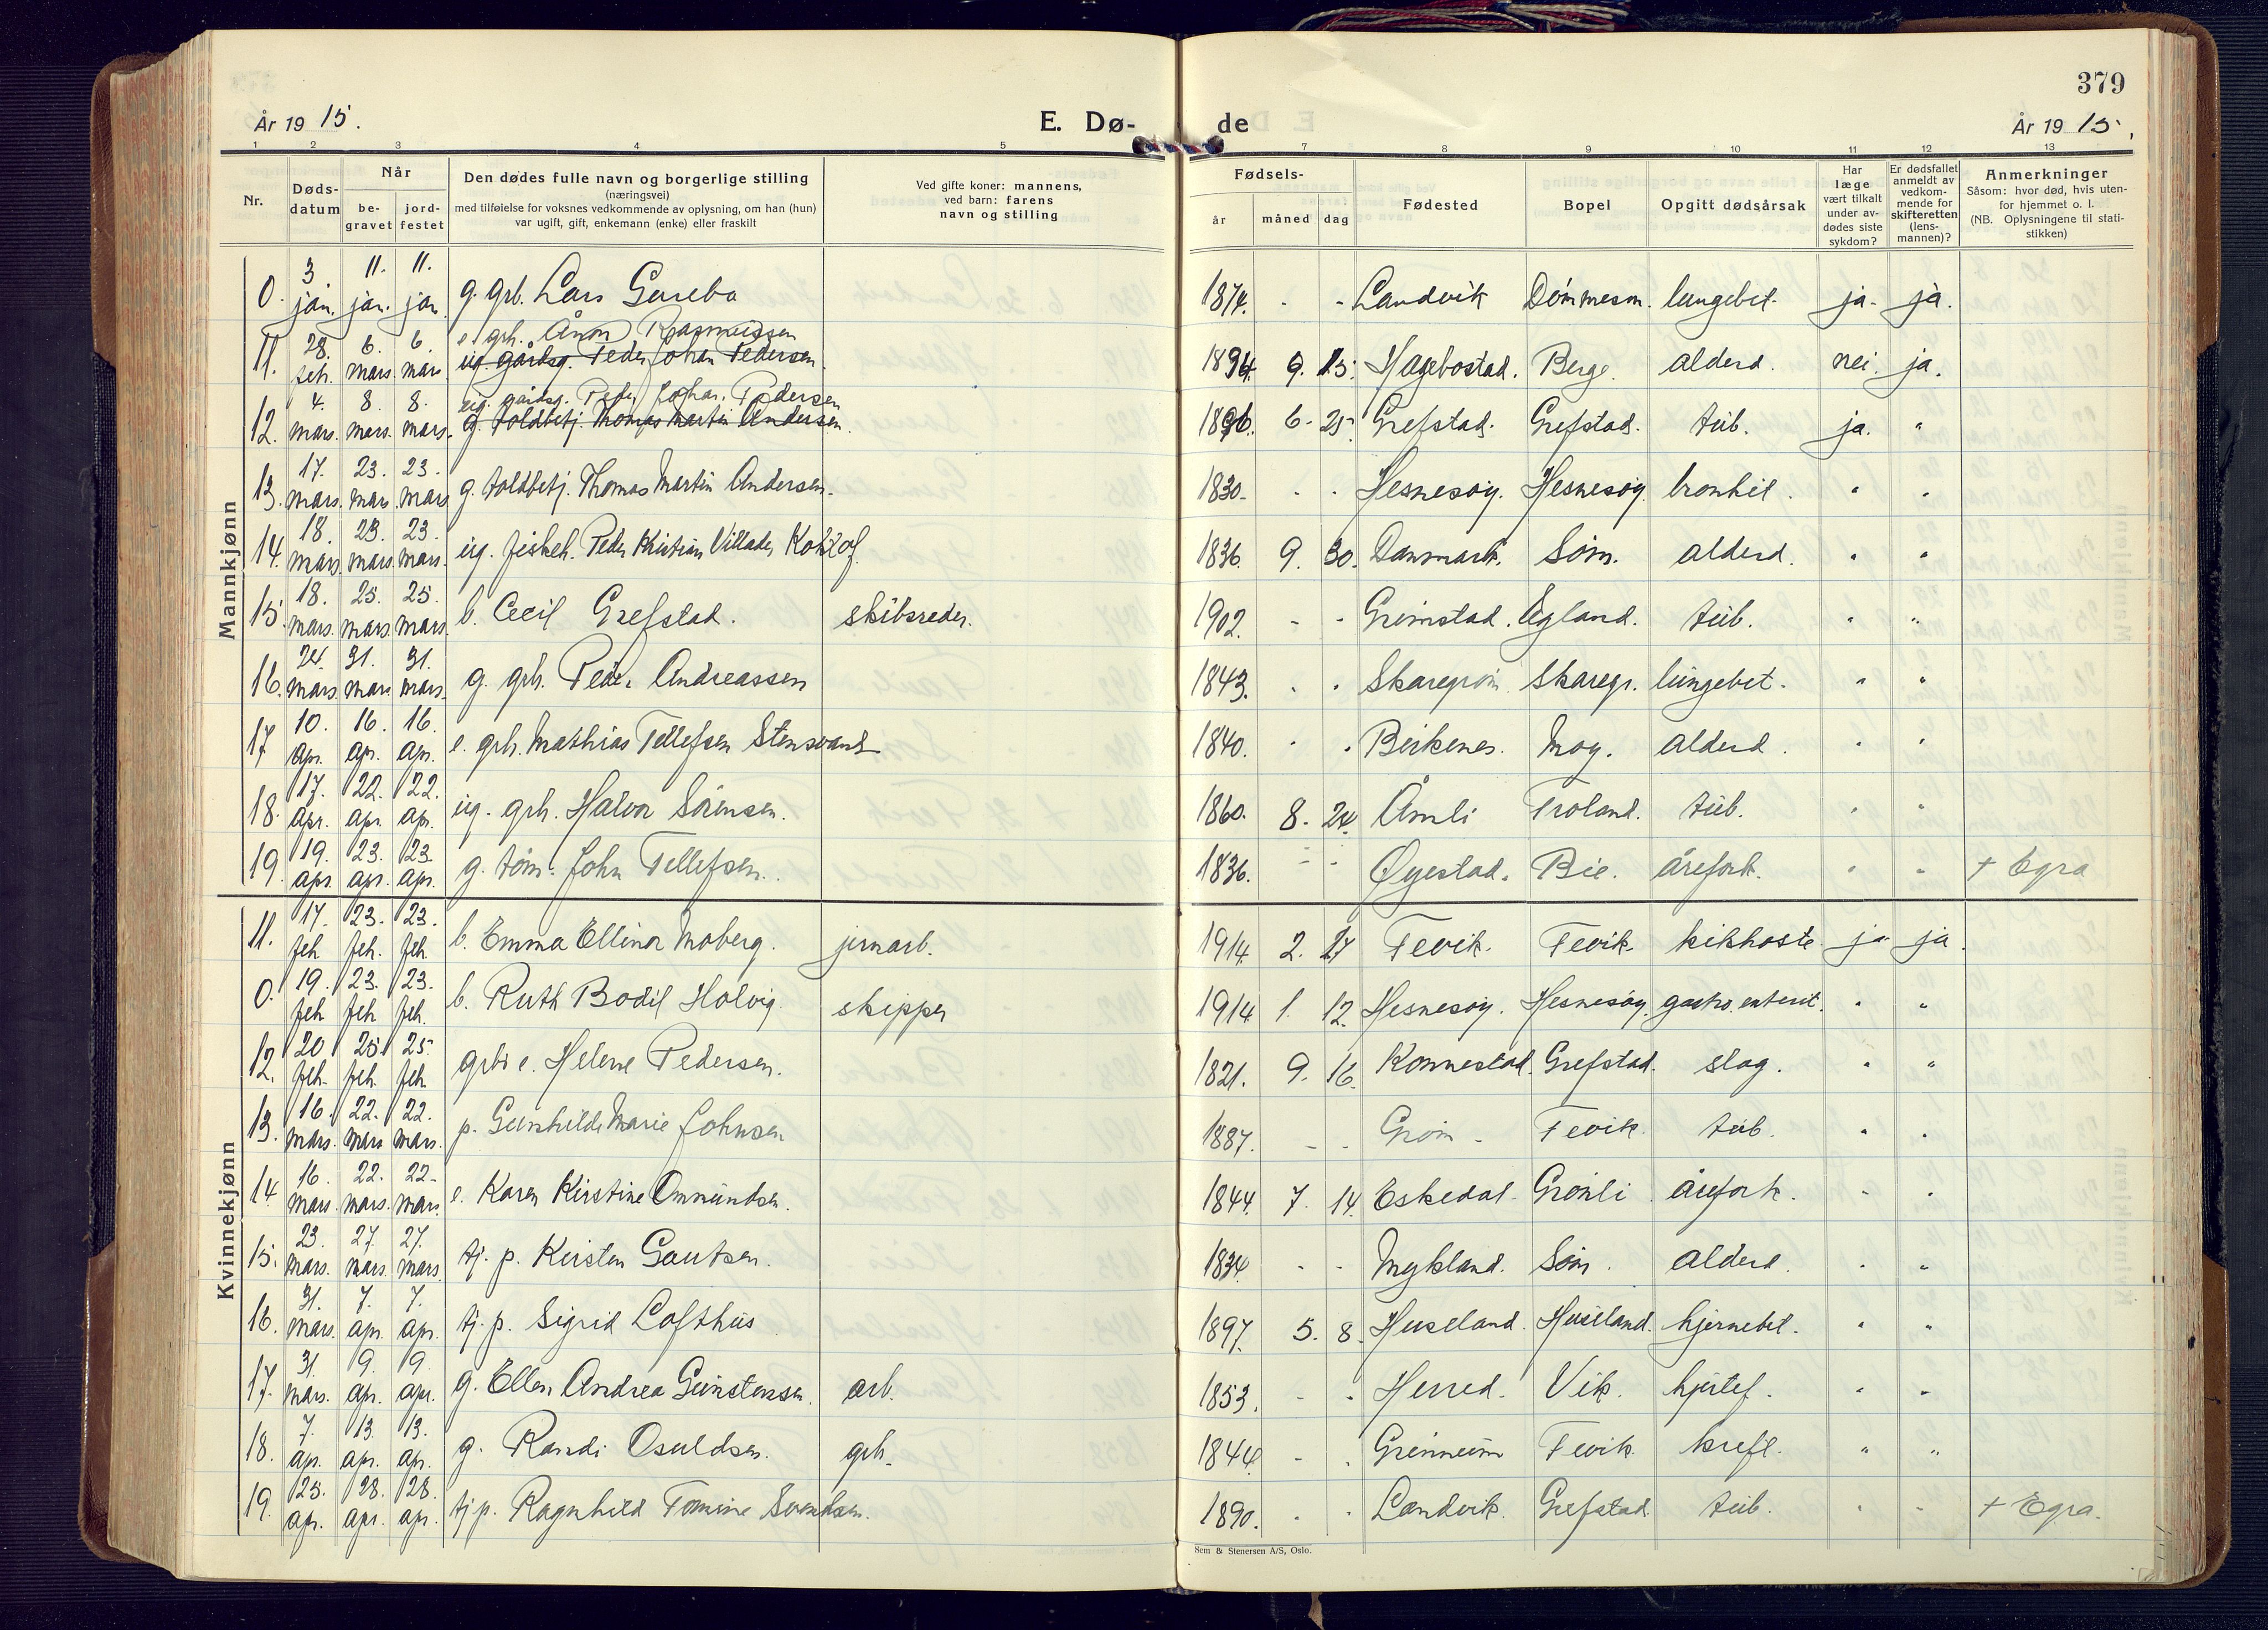 379
År 19 15. E. Dø- de År 19 15.
1 2 3 4 5 7 8 9 10 11 12 13
Nr. Døds-datum Når be-gravet jord-festet Den dødes fulle navn og borgerlige stilling (næringsvei) med tilføielse for voksnes vedkommende av oplysning, om han (hun) var ugift, gift, enkemann (enke) eller fraskilt Ved gifte koner: mannens, ved barn: farens navn og stilling Fødsels- år måned dag Fødested Bopel Opgitt dødsårsak Har læge vært tilkalt under av-dødes siste sykdom? Er dødsfallet anmeldt av vedkom-mende for skifteretten (lens-mannen)? Anmerkninger Såsom: hvor død, hvis uten-for hjemmet o. l. (NB. Oplysningene til stati-stikken)
Mannkjønn
0. 3. jan. 11. jan. 11. jan. g. grb. Lars 1874. - - Landvik Dømmesm. lungebet. ja. ja.
e. grb. Ånon Rasmussen
11. 28. feb. 6. mars. 6. mars. ug. gårdsg. Peder Johan Pedersen. 1894. 9. 15. Hægebostad. Berge. alderd. nei. ja.
ug. gårdsg. Peder Johan Pedersen
12. 4. mars. 8. mars. 8. mars. g. toldbetj. Thomas Martin Andersen. 1896. 6. 25. Grefstad. Grefstad. tub. ja. "
13. 17. mars. 23. mars. 23. mars. g. toldbetj. Thomas Martin Andersen. 1830. - - Hesnesøy. Hesnesøy. bronkit. " "
14. 18. mars. 23. mars. 23. mars. ug. fiskeh. Peder Kristian Villads 1836. 9. 30. Danmark. Søm. alderd. " "
15. 18. mars. 25. mars. 25. mars. b. Cecil Grefstad. skibsreder. 1902. - - Grimstad. Egland. tub. " "
16. 24. mars. 31. mars. 31. mars. g. grb. Peder Andreassen 1843. - - Skaregrøm. Skaregr. lungebet. " "
17 10. apr. 16. apr. 16. apr. e. grb. Mathias Tellefsen Stensvand 1840. - - Birkenes. Moy. alderd. " "
18. 17. apr. 22. apr. 22. apr. ug. grb. Halvor Sørensen. 1860. 8. 24. Åmli Troland. tub. " "
19. 19. apr. 23. apr. 23. apr. g. tøm. John Tellefsen. 1836. - - Øyestad. Bie. årefork. " " + Egra
Kvinnekjønn
11. 17. feb. 23. feb. 23. feb. b. Emma Ellinor Moberg. jernarb. 1914. 2. 27 Fevik. Fevik. kikhoste ja ja.
0. 19. feb. 23. feb. 23. feb. b. Ruth Bodil Holvig. skipper 1914 1. 12. Hesnesøy. Hesnesøy. gastro.enterit. " "
12. 20 feb. 25. feb. 25. feb. grb's e. Helene Pedersen. 1821. 9. 16. Konnestad. Grefstad. slag. " "
13. 16. mars. 22. mars 22. mars. p. Gunhilde Marie Johnsen 1887. - - Grøm. Fevik. tub. " "
14. 16. mars. 22. mars. 22. mars. e. Karen Kirstine Ommundsen. 1844. 7. 14. Eskedal. Grønli årefork. " "
15. 23. mars. 27. mars. 27. mars. tj. p. Kirsten Gautsen. 1834. - - Mykland. Søm. alderd. " "
16. 31. mars. 7. apr. 7. apr. tj. p. Sigrid Lofthus 1897. 5. 8. Huseland. Huseland. hjernebet. " "
17. 31. mars. 9. apr. 9. apr. g. Ellen Andrea Gunstensen. arb. 1853. - - Herred. Vik. hjertef. " "
18. 7. apr. 13. apr. 13. apr. g. Randi Osuldsen. grb. 1844. - - Fevik kreft. " "
19. 25. apr. 28. apr. 28. apr. tj p. Ragnhild Tomine Svendsen. 1890. - - Landvik. Grefstad. tub. " " + Egra.
Sem & Stenersen A/S, Oslo.